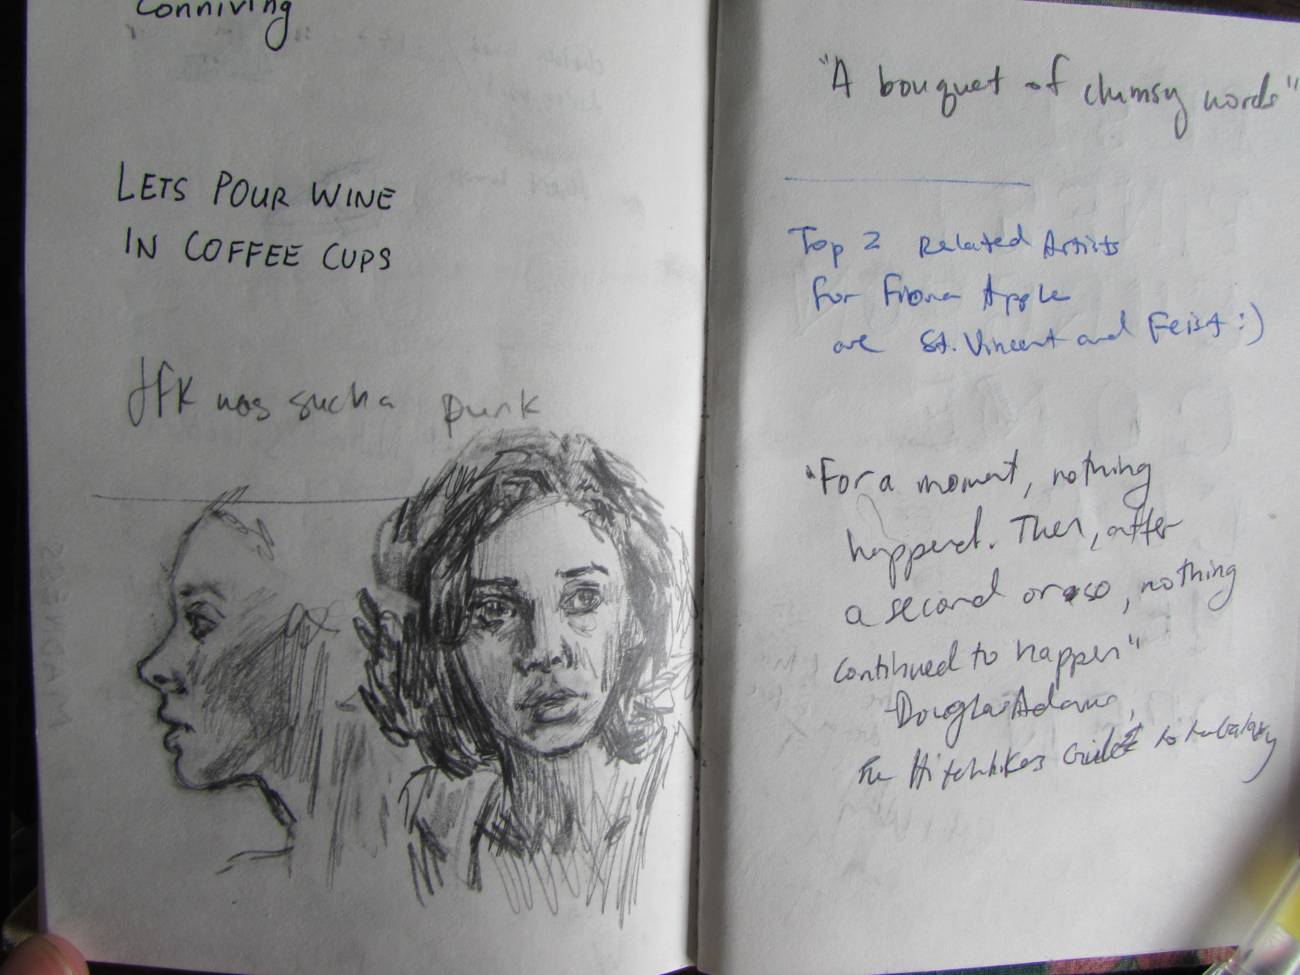 Conniving
LETS POUR WINE
IN COFFEE CUPS
Jfk was such a punk
"A bouquet of clumsy words"
Top 2 Related Artists
For Fiona Apple
are St. Vincent and Feist :)
"For a moment, nothing
happened. Then, after
a second or so, nothing
continued to happen"
- Douglas Adams,
The Hitchhikers Guide to the Galaxy
MADNESS